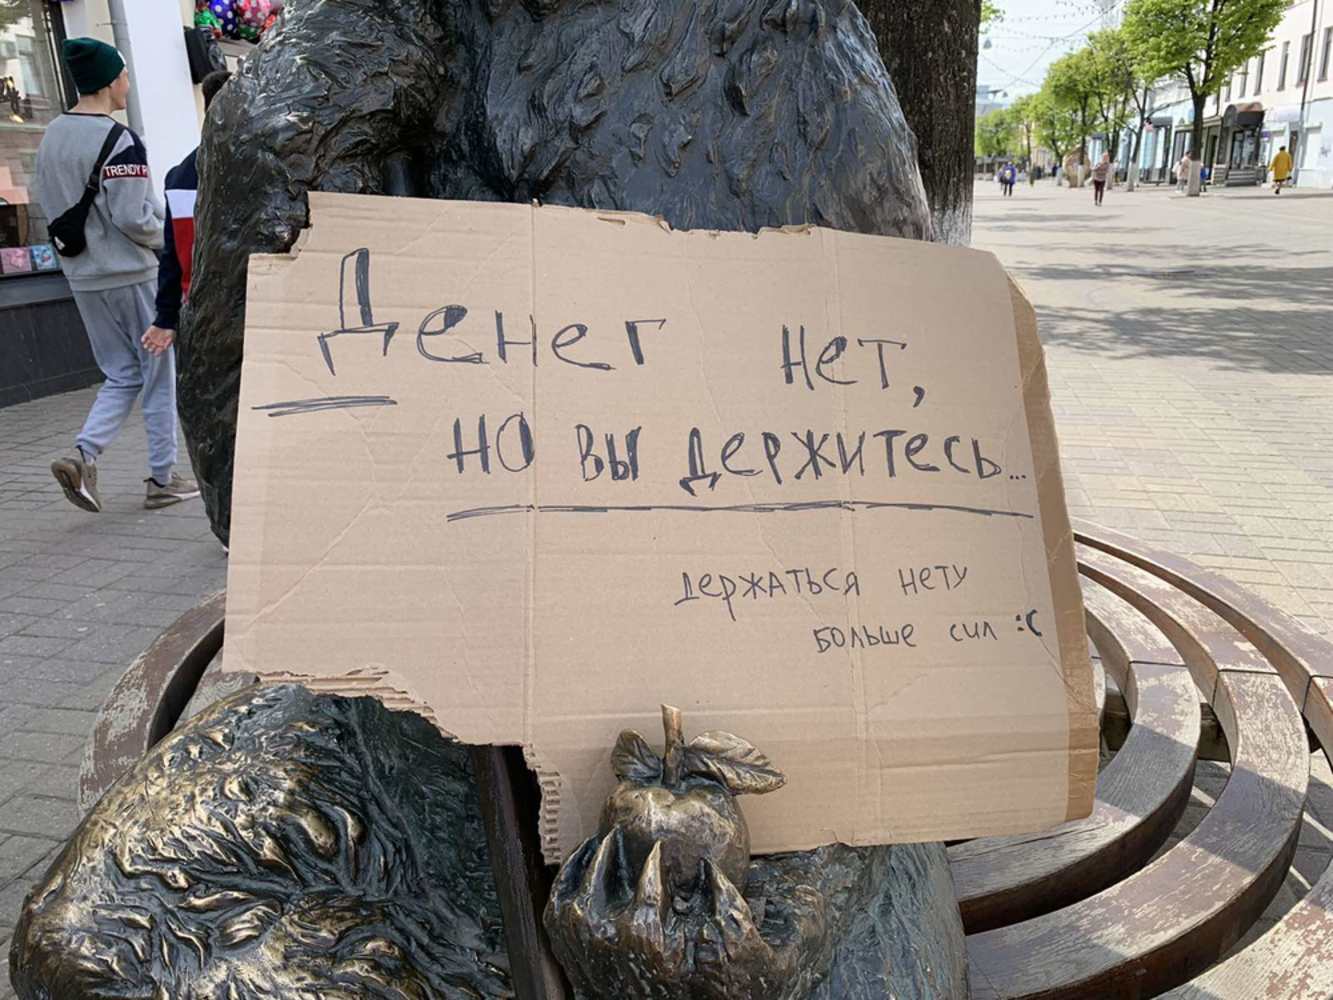 TRENDY
Денег нет,
но вы держитесь...
держаться нету
больше сил :(